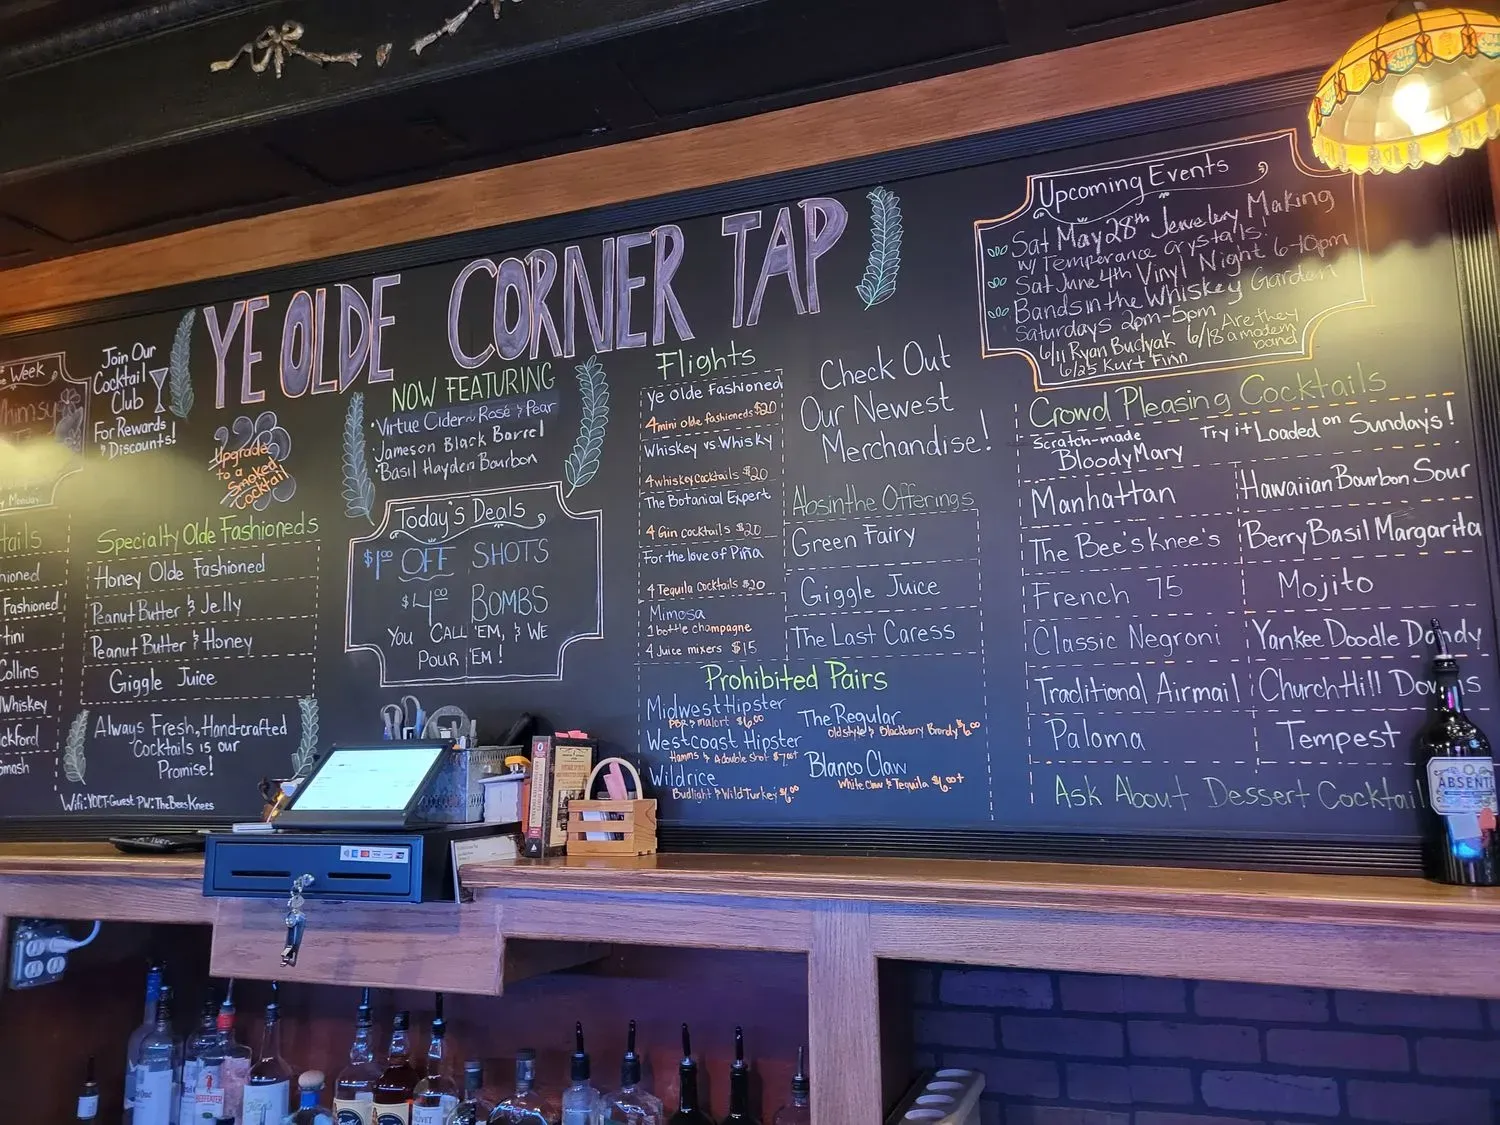 YE OLDE CORNER TAP
Week
Join Our
Cocktail
Club
For Rewards
& Discounts!
Upgrade
to a
Smoked
Cocktail
Monday
tails
ioned
Fashioned
tini
Collins
Whiskey
ckford
Smash
Specialty Olde Fashioneds
Honey Olde Fashioned
Peanut Butter & Jelly
Peanut Butter & Honey
Giggle Juice
Always Fresh, Hand-crafted
Cocktails is our
Promise!
Wifi: YOCT-Guest PW: TheBeesKnees
NOW FEATURING
Virtue Cider ~ Rosé & Pear
Jameson Black Barrel
Basil Hayden Bourbon
Today's Deals
$1.00 OFF SHOTS
$4.00 BOMBS
YOU CALL 'EM, & WE
POUR 'EM!
Flights
Ye olde Fashioned
4 mini olde fashioneds $20
Whiskey vs Whisky
4 whiskey cocktails $20
The Botanical Expert
4 Gin cocktails $20
For the love of Piña
4 Tequila Cocktails $20
Mimosa
1 bottle champagne
4 Juice mixers $15
Check Out
Our Newest
Merchandise!
Absinthe Offerings
Green Fairy
Giggle Juice
The Last Caress
Prohibited Pairs
Midwest Hipster
PBR & malort $6.00
Westcoast Hipster
Hamms & A double Shot
Wildrice
Budlight & Wild Turkey
The Regular
Old style & Blackberry Brandy
Blanco Claw
White Claw & Tequila
Upcoming Events
Sat May 28th Jewelery Making
w/ Temperance crystals!
Sat June 4th Vinyl Night 6-10pm
Bands in the Whiskey Garden
Saturdays 2pm-5pm
6/11 Ryan Budyak 6/18 Are they
a modern
band
6/25 Kurt Finn
Crowd Pleasing Cocktails
Scratch-made
Bloody Mary Try it Loaded on Sunday's!
Manhattan
The Bee's Knee's
French 75
Classic Negroni
Traditional Airmail
Paloma
Hawaiian Bourbon Sour
Berry Basil Margarita
Mojito
Yankee Doodle Dandy
Church Hill Downs
Tempest
Ask About Dessert Cocktail
ABSENT
BEEFEATER
Old Style